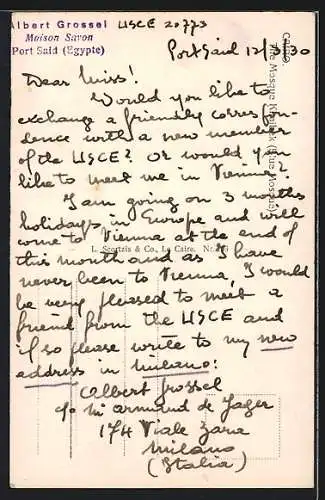 Albert Grossel USCE 20773
Maison Savon
Port Said (Egypte)
Port Said 12/ /30
Dear Miss!
Would you like to
exchange a friendly correspon-
dence with a new member
of the USCE? Or would you
like to meet me in Vienna?
I am going on 3 months
holidays in Europe and will
come to Vienna at the end of
this month and as I have
never been to Vienna, I would
be very pleased to meet a
friend from the USCE and
if so please write to my new
address in Milano:
Albert Grossel
c/o Mr Armand de Jager
174 Viale Zara
Milano
(Italia)
L. Scortzis & Co., Le Caire. Nr.
CAIRO.
The Mosque Khaïrbek (Blue Mosque)